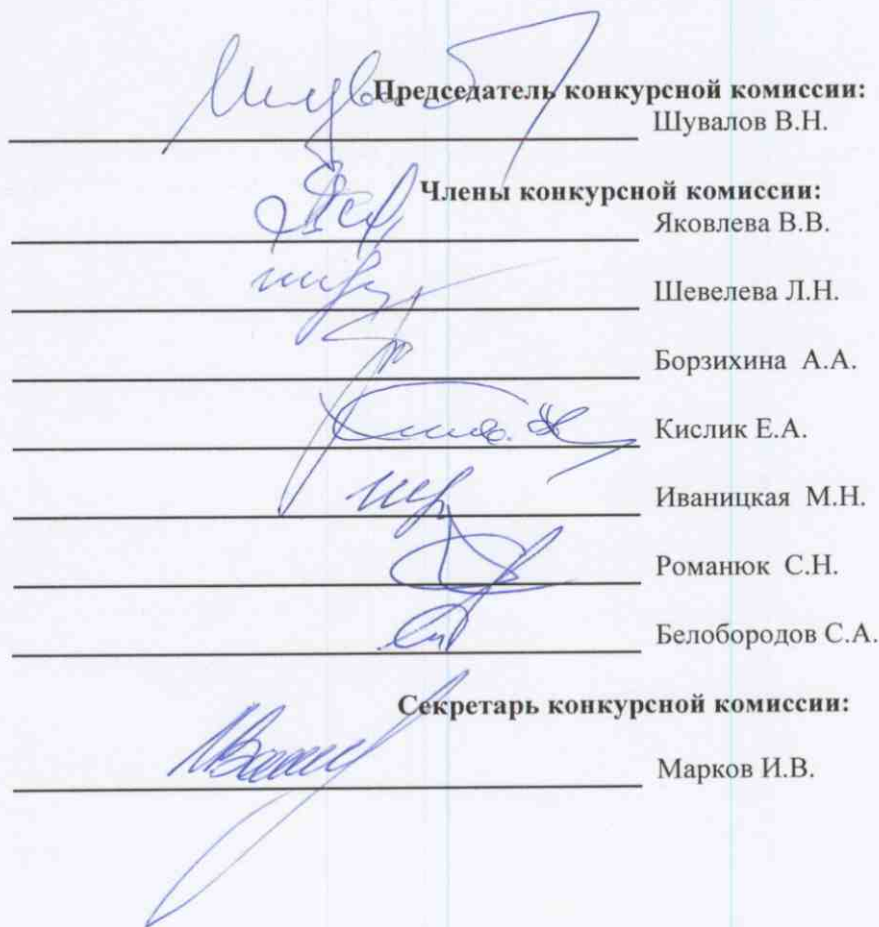 Председатель конкурсной комиссии:
Шувалов В.Н.
Члены конкурсной комиссии:
Яковлева В.В.
Шевелева Л.Н.
Борзихина А.А.
Кислик Е.А.
Иваницкая М.Н.
Романюк С.Н.
Белобородов С.А.
Секретарь конкурсной комиссии:
Марков И.В.